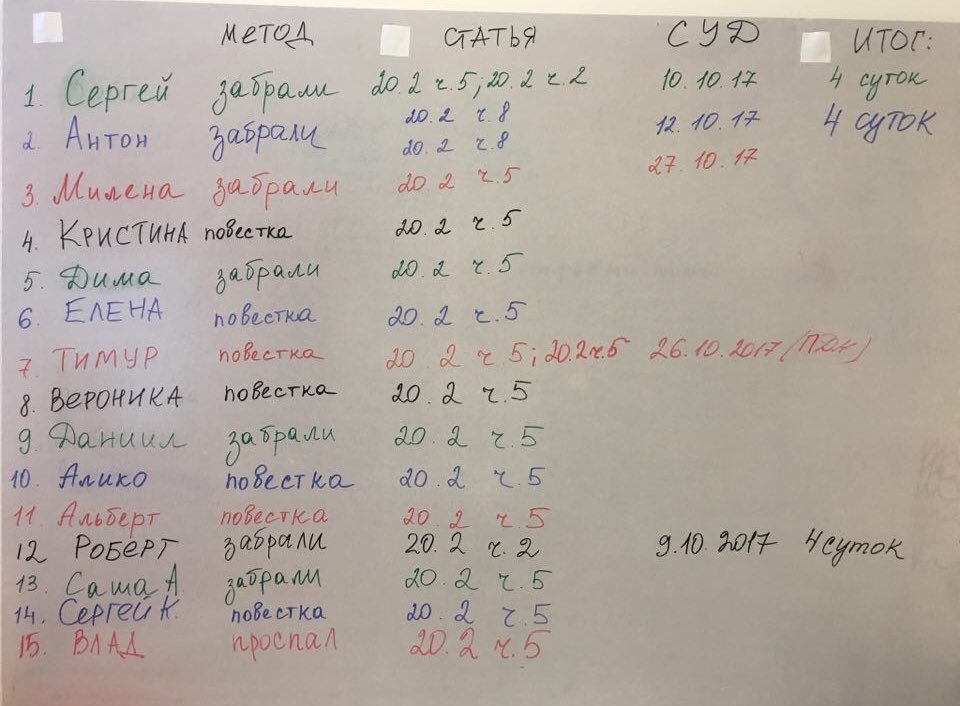 МЕТОД СТАТЬЯ СУД ИТОГ:
1. Сергей забрали 20.2 ч.5; 20.2 ч.2 10.10.17 4 суток
2. Антон забрали 20.2 ч.8 20.2 ч.8 12.10.17 4 суток
3. Милена забрали 20.2 ч.5 27.10.17
4. Кристина повестка 20.2 ч.5
5. Дима забрали 20.2 ч.5
6. ЕЛЕНА повестка 20.2 ч.5
7. ТИМУР повестка 20.2 ч.5; 20.2 ч.5 26.10.2017 (ПДН)
8. ВЕРОНИКА повестка 20.2 ч.5
9. Даниил забрали 20.2 ч.5
10. Алико повестка 20.2 ч.5
11. Альберт повестка 20.2 ч.5
12 Роберт забрали 20.2 ч.2 9.10.2017 4 суток
13. Саша А. забрали 20.2 ч.5
14. Сергей К. повестка 20.2 ч.5
15. ВЛАД проспал 20.2 ч.5